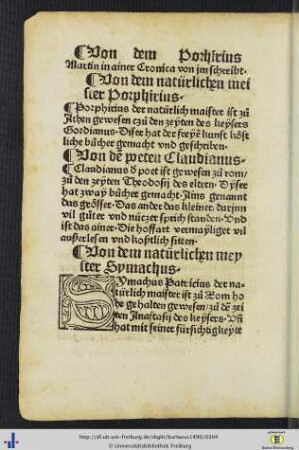 ¶Von dem Porhirius
Martin in ainer Cronica von jm schreibt.
¶Von dem natürlichen mei
ster Porphirius.
¶Porphirius der natürlich maister ist zů
Athen gewesen czů den zeyten des keysers
Gordianus. Diser hat der freyē kunst köst
liche bücher gemacht vnd geschriben.
¶Von dē poeten Claudianus.
¶Claudianus d poet ist gewesen zů rom/
zů den zeyten Theodosij des eltern. Dyser
hat zway bücher gemacht. Ains genannt
das grösser. Das ander das kleiner. darjnn
vil gůter vnd nüczer sprich standen. Vnd
ist das ainer. Die hoffart vermayliget vil
außerlesen vnd kostlich sitten.
¶Von dem natürlichen mey
ster Symachus.
Symachus Patricius der na-
türlich maister ist zů Rom ho
he gehalten gewesen/ zů dē zei
ten Anastasij des keysers. Vñ
hat mit seiner fürsichtigkeytt
http://dl.ub.uni-freiburg.de/diglit/burlaeus1490/0304
© Universitätsbibliothek Freiburg